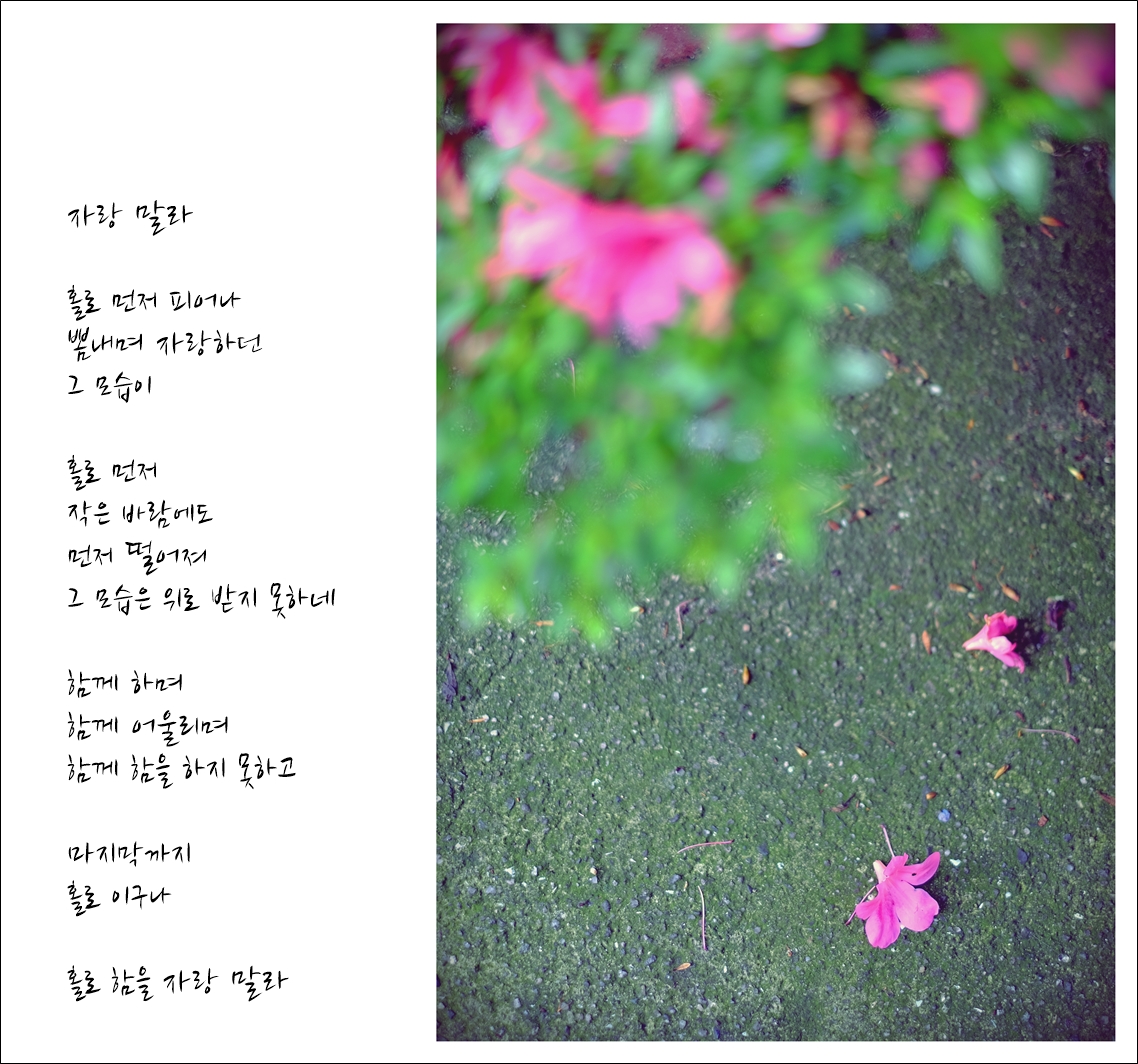 자랑 말라
홀로 먼저 피어나
뽐내며 자랑하던
그 모습이
홀로 먼저
작은 바람에도
먼저 떨어져
그 모습은 위로 받지 못하네
함께 하며
함께 어울리며
함께 함을 하지 못하고
마지막까지
홀로 이구나
홀로 함을 자랑 말라